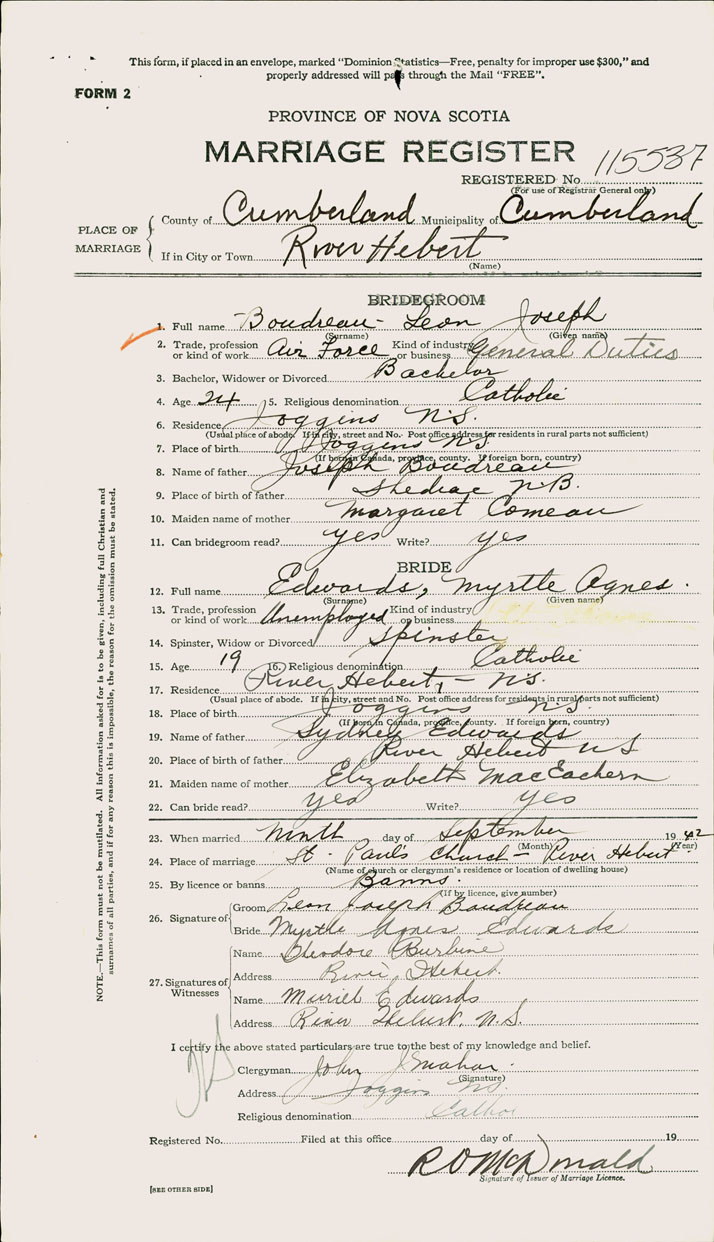 This form, if placed in an envelope, marked "Dominion Statistics—Free, penalty for improper use $300," and
properly addressed will pass through the Mail "FREE".
FORM 2
PROVINCE OF NOVA SCOTIA
MARRIAGE REGISTER
115537
REGISTERED No.
(For use of Registrar General only)
PLACE OF MARRIAGE
County of Cumberland Municipality of Cumberland
If in City or Town River Hebert
(Name)
BRIDEGROOM
1. Full name Boudreau - Leon Joseph
(Surname) (Given name)
2. Trade, profession or kind of work Air Force Kind of industry or business General Duties
3. Bachelor, Widower or Divorced Bachelor
4. Age 24 5. Religious denomination Catholic
6. Residence Joggins N.S.
(Usual place of abode. If in city, street and No. Post office address for residents in rural parts not sufficient)
7. Place of birth Joggins N.S.
(If born in Canada, province, county. If foreign born, country)
8. Name of father Joseph Boudreau
9. Place of birth of father Shediac N.B.
10. Maiden name of mother Margaret Comeau
11. Can bridegroom read? yes Write? yes
BRIDE
12. Full name Edwards, Myrtle Agnes.
(Surname) (Given name)
13. Trade, profession or kind of work Unemployed Kind of industry or business
14. Spinster, Widow or Divorced Spinster
15. Age 19 16. Religious denomination Catholic
17. Residence River Hebert, - N.S.
(Usual place of abode. If in city, street and No. Post office address for residents in rural parts not sufficient)
18. Place of birth Joggins N.S.
(If born in Canada, province, county. If foreign born, country)
19. Name of father Sydney Edwards
20. Place of birth of father River Hebert NS
21. Maiden name of mother Elizabeth MacEachern
22. Can bride read? yes Write? yes
23. When married Ninth day of September 1942
(Month) (Year)
24. Place of marriage St. Paul's Church - River Hebert
(Name of church or clergyman's residence or location of dwelling house)
25. By licence or banns Banns
(If by licence, give number)
26. Signature of
Groom Leon Joseph Boudreau
Bride Myrtle Agnes Edwards
27. Signatures of Witnesses
Name Theodore Burbine
Address River Hebert.
Name Muriel Edwards
Address River Hebert, N.S.
I certify the above stated particulars are true to the best of my knowledge and belief.
Clergyman John J
(Signature)
Address Joggins NS.
Religious denomination Cathol
Registered No. Filed at this office day of 19
R O McDonald
Signature of Issuer of Marriage Licence.
[SEE OTHER SIDE]
NOTE.—This form must not be mutilated. All information asked for is to be given, including full Christian and
surnames of all parties, and if for any reason this is impossible, the reason for the omission must be stated.